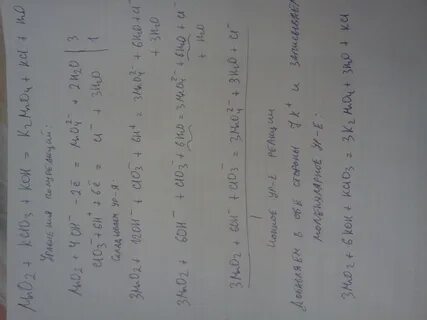 MnO2 + KClO3 + KOH = K2MnO4 + KCl + H2O
Уравнения полуреакций:
MnO2 + 4OH⁻ - 2ē = MnO4²⁻ + 2H2O | 3
ClO3⁻ + 6H⁺ + 6ē = Cl⁻ + 3H2O | 1
Складываем ур-я:
3MnO2 + 12OH⁻ + ClO3⁻ + 6H⁺ = 3MnO4²⁻ + 6H2O + Cl⁻
+ 3H2O
3MnO2 + 6OH⁻ + ClO3⁻ + 6H2O = 3MnO4²⁻ + 6H2O + Cl⁻
+ H2O
3MnO2 + 6OH⁻ + ClO3⁻ = 3MnO4²⁻ + 3H2O + Cl⁻
Ионное ур-е реакции
Добавляем в обе стороны 7K⁺ и записываем
молекулярное ур-е:
3MnO2 + 6KOH + KClO3 = 3K2MnO4 + 3H2O + KCl